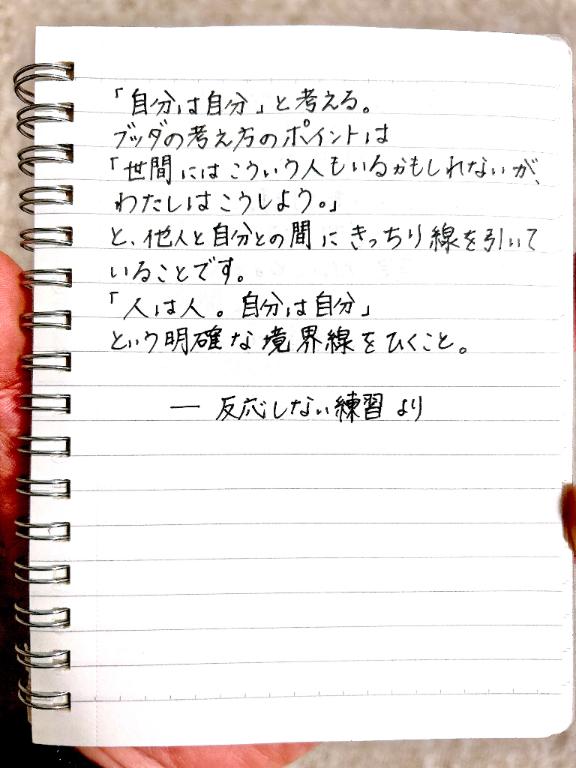 「自分は自分」と考える。
ブッダの考え方のポイントは
「世間にはこういう人もいるかもしれないが、
わたしはこうしよう。」
と、他人と自分との間にきっちり線を引いて
いることです。
「人は人。自分は自分」
という明確な境界線をひくこと。
― 反応しない練習 より